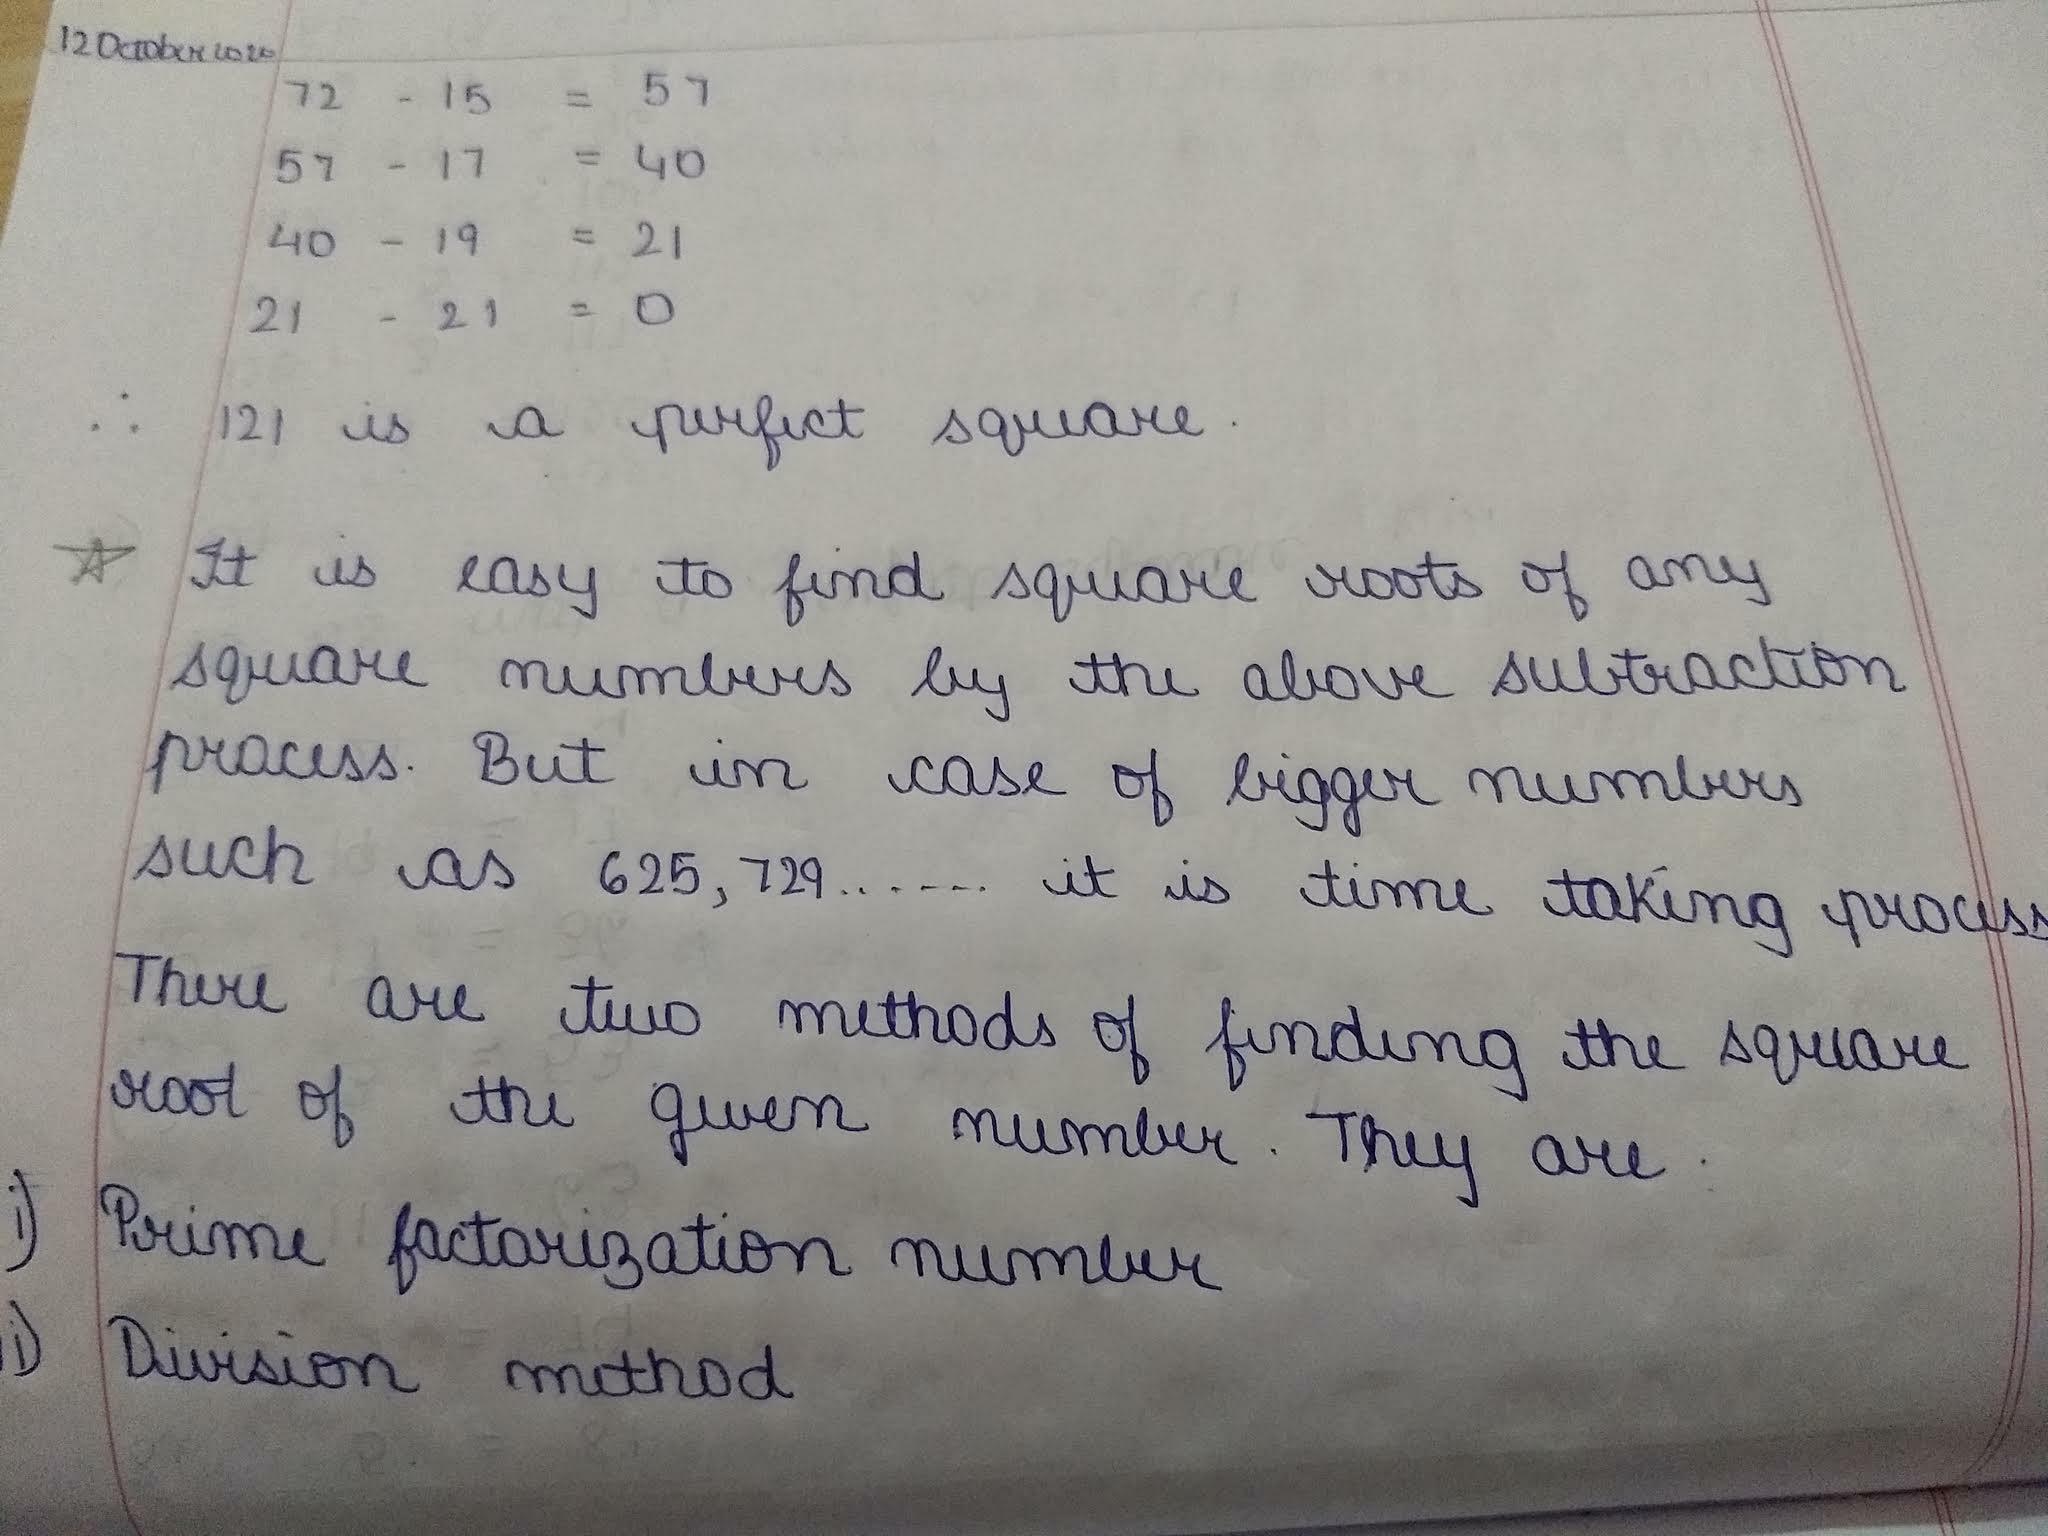 12 October 2020
72 - 15 = 57
57 - 17 = 40
40 - 19 = 21
21 - 21 = 0
∴ 121 is a perfect square.
☆ It is easy to find square roots of any
square numbers by the above subtraction
process. But in case of bigger numbers
such as 625, 729......... it is time taking process
There are two methods of finding the square
root of the given number. They are.
i) Prime factorization number
ii) Division method